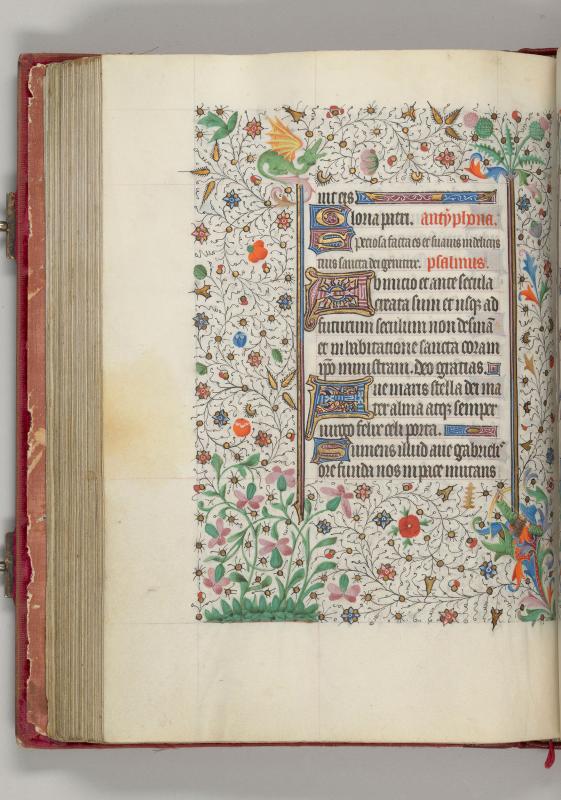 in ters
Gloria patri. antyphona.
Speciosa facta es et suavis in deliciis
tuis sancta dei genitrix. psalmus.
Ab inicio et ante secula
creata sum et usq; ad
futurum seculum non desinã
et in habitatione sancta coram
ipõ ministravi. deo gratias.
Ave maris stella dei ma
ter alma atq; semper
virgo felix celi porta.
Sumens illud ave gabrieli'
ore funda nos in pace mutans